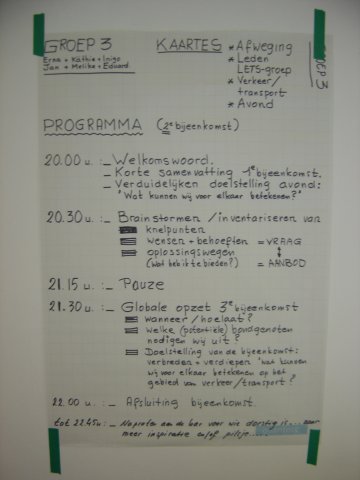 GROEP 3
Erna + Kathie + Inigo
Jan + Melike + Eduard
KAARTES * Afweging
* Leden
LETS-groep
* Verkeer/
transport
* Avond
GROEP 3
PROGRAMMA (2e bijeenkomst)
20.00 u. : _ Welkomswoord.
_ Korte samenvatting 1e bijeenkomst.
_ Verduidelijken doelstelling avond:
"Wat kunnen wij voor elkaar betekenen?"
20.30 u. : _ Brainstormen / inventariseren van
knelpunten
wensen + behoeften = VRAAG
oplossingswegen
(wat heb ik te bieden?) = AANBOD
21.15 u. : _ Pauze
21.30 u. : _ Globale opzet 3e bijeenkomst
wanneer / hoelaat?
welke (potentiële) bondgenoten
nodigen wij uit?
Doelstelling van de bijeenkomst:
verbreden + verdiepen "wat kunnen
wij voor elkaar betekenen op het
gebied van verkeer/transport?"
22.00 u. : _ Afsluiting bijeenkomst.
tot 22.45u. : _ Napraten aan de bar voor wie dorstig is... naar
meer inspiratie en/of pilsje...